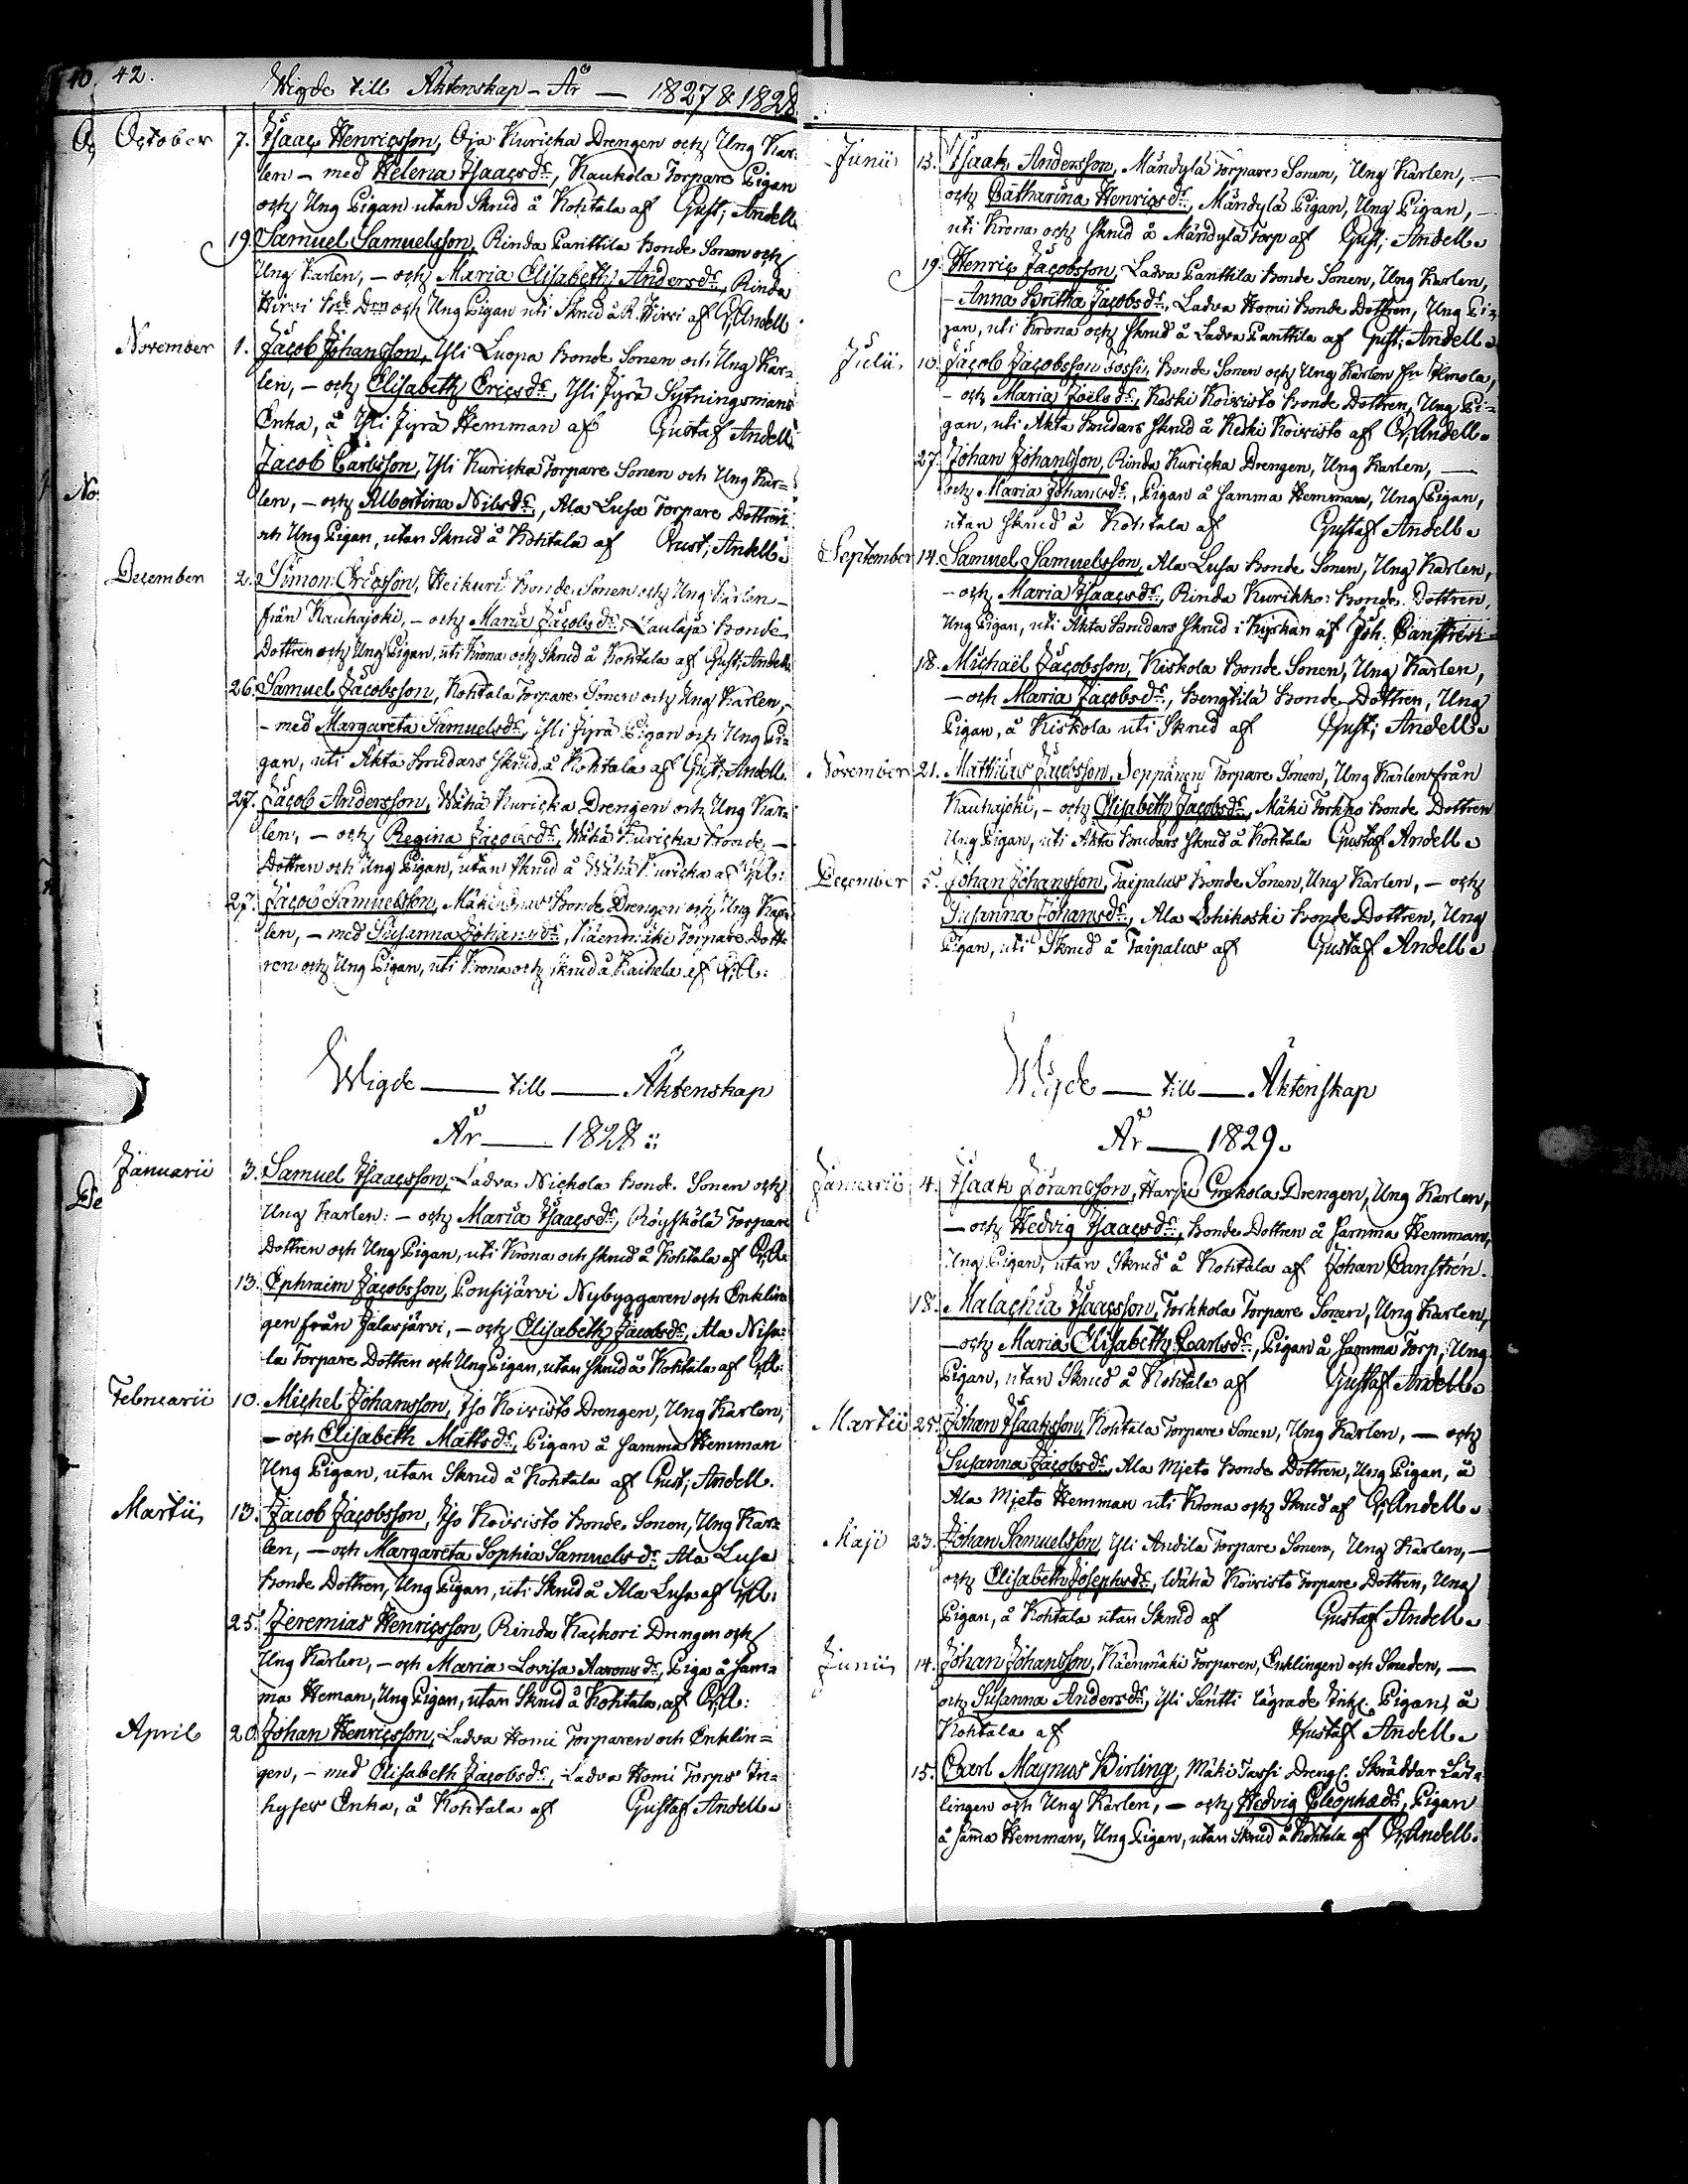 40. 42.
Wigde till Äktenskap - År — 1827 & 1828
October 7. Isaac Henricsson, Oja Kuricka Drengen och Ung Kar-
len - med Helena Isaacsdr, Kaukola Torpare Pigan
och Ung Pigan utan Skrud å Kohtala af Gust; Andell
19. Samuel Samuelsson, Rinda Panttila Bonde Sonen och
Ung Karlen, - och Maria Elisabeth Andersdr, Rinda
Hirvi Bde Drn och Ung Pigan uti Skrud å R. Hirvi af G; Andell
November 1. Jacob Johansson, Yli Luopa Bonde Sonen och Ung Kar-
len, - och Elisabeth Ericsdr, Yli Jyrä Sytningsmans
Enka, å Yli Jyrä Hemman af Gustaf Andell
Jacob Carlsson, Yli Kuricka Torpare Sonen och Ung Kar-
len, - och Albertina Nilsdr, Ala Lusa Torpare Dottren
och Ung Pigan, utan Skrud å Kohtala af Gust; Andell.
December 2. Simon Ericsson, Heikuri Bonde Sonen och Ung Karlen -
från Kauhajoki, - och Maria Jacobsdr, Laulaja Bonde
Dottren och Ung Pigan, uti Krona och Skrud å Kohtala af Gust; Andell
26. Samuel Jacobsson, Kohtala Torpare Sonen och Ung Karlen,
- med Margareta Samuelsdr, Yli Jyrä Pigan och Ung Pi-
gan, uti Äkta Brudars Skrud å Kohtala af Gust; Andell
27. Jacob Andersson, Wähä Kuricka Drengen och Ung Kar-
len, - och Regina Jacobsdr, Wähä Kuricka Bonde, -
Dottren och Ung Pigan, utan Skrud å Wähä Kuricka af G; A:
27. Jacob Samuelsson, Mäki Bonde Drengen och Ung Kar-
len, - med Susanna Johansdr, Käenmäki Torpare Dott-
ren och Ung Pigan, uti Krona och Skrud å af G; A:
Wigde — till — Äktenskap
År — 1828
Januarii 3. Samuel Isaacsson, Ladva Nichola Bonde Sonen och
Ung Karlen: - och Maria Isaacsdr, Röyskölä Torpare
Dottren och Ung Pigan, uti Krona och Skrud å Kohtala af G; A.
13. Ephraim Jacobsson, Ponsijärvi Nybyggaren och Enklin-
gen från Jalasjärvi, - och Elisabeth Jacobsdr, Ala Nisu-
la Torpare Dottren och Ung Pigan, utan Skrud å Kohtala af G; A:
Februarii 10. Michel Johansson, Iso Koivisto Drengen, Ung Karlen,
- och Elisabeth Mattsdr, Pigan å samma Hemman
Ung Pigan, utan Skrud å Kohtala af Gust; Andell.
Martii 13. Jacob Jacobsson, Iso Koivisto Bonde Sonen, Ung Kar-
len, - och Margareta Sophia Samuelsdr Ala Lusa
Bonde Dottren, Ung Pigan, uti Skrud å Ala Lusa af G; A.
25. Jeremias Henricsson, Rinda Kackori Drengen och
Ung Karlen, - och Maria Lovisa Aaronsdr, Piga å sam-
ma Heman, Ung Pigan, utan Skrud å Kohtala, af G; A:
April 20. Johan Henricsson, Ladva Homi Torparen och Enklin-
gen, - med Elisabeth Jacobsdr, Ladva Homi Torps In-
hyses Enka, å Kohtala af Gustaf Andell.
Junii 13. Isaak Andersson, Mändylä Torpare Sonen, Ung Karlen, —
och Catharina Henricsdr, Mändylä Pigan, Ung Pigan, -
uti Krona och Skrud å Mändylä Torp af Gust; Andell.
19. Henric Jacobsson, Ladva Panttila Bonde Sonen, Ung Karlen,
- Anna Britha Jacobsdr, Ladva Homi Bonde Dottren, Ung Pi-
gan, uti Krona och Skrud å Ladva Panttila af Gust; Andell.
Julii 10. Jacob Jacobsson Sossi, Bonde Sonen och Ung Karlen fr. Ilmola,
- och Maria Joëlsdr, Keski Koivisto Bonde Dottren, Ung Pi-
gan, uti Äkta Brudars Skrud å Keski Koivisto af G; Andell.
27. Johan Johansson, Rinda Kuricka Drengen, Ung Karlen, —
och Maria Johansdr, Pigan å samma Hemman, Ung Pigan,
utan Skrud å Kohtala af Gustaf Andell.
September 14. Samuel Samuelsson, Ala Lusa Bonde Sonen, Ung Karlen,
- och Maria Isaacsdr, Rinda Kurikko Bonde Dottren,
Ung Pigan, uti Äkta Brudars Skrud i Kyrkan af Joh. Canstrén
18. Michaël Jacobsson, Kiskola Bonde Sonen, Ung Karlen,
- och Maria Jacobsdr, Bengtilä Bonde Dottren, Ung
Pigan, å Kiskola uti Skrud af Gust; Andell.
November 21. Matthias Jacobsson, Seppänen Torpare Sonen, Ung Karlen från
Kauhajoki, - och Elisabeth Jacobsdr, Mäki Torkko Bonde Dottren
Ung Pigan, uti Äkta Brudars Skrud å Kohtala Gustaf Andell.
December 5. Johan Johansson, Taipalus Bonde Sonen, Ung Karlen, - och
Susanna Johansdr, Ala Lohikoski Bonde Dottren, Ung
Pigan, uti Skrud å Taipalus af Gustaf Andell.
Wigde — till — Äktenskap
År — 1829.
Januarii 4. Isaak Göransson, Harju Grekola Drengen, Ung Karlen,
- och Hedvig Isaacsdr, Bonde Dottren å samma Hemman,
Ung Pigan, utan Skrud å Kohtala af Johan Canstrén.
18. Malachia Isaacsson, Torkkola Torpare Sonen, Ung Karlen,
- och Maria Elisabeth Carlsdr, Pigan å samma Torp, Ung
Pigan, utan Skrud å Kohtala af Gustaf Andell.
Martii 25. Johan Isaaksson, Kohtala Torpare Sonen, Ung Karlen, - och
Susanna Jacobsdr, Ala Mjeto Bonde Dottren, Ung Pigan, å
Ala Mjeto Hemman uti Krona och Skrud af G; Andell.
Maji 23. Johan Samuelsson, Yli Andila Torpare Sonen, Ung Karlen, —
och Elisabeth Josephsdr, Wähä Koivisto Torpare Dottren, Ung
Pigan, å Kohtala utan Skrud af Gustaf Andell.
Junii 14. Johan Johansson, Käenmäki Torparen, Enklingen och Smeden, —
och Susanna Andersdr, Yli Säntti lägrade Pigan, å
Kohtala af Gustaf Andell.
15. Carl Magnus Birling, Mäki Tassi Skräddar Lär-
lingen och Ung Karlen, - och Hedvig Cleophædr, Pigan
å sama Hemman, Ung Pigan, utan Skrud å Kohtala af G; Andell.